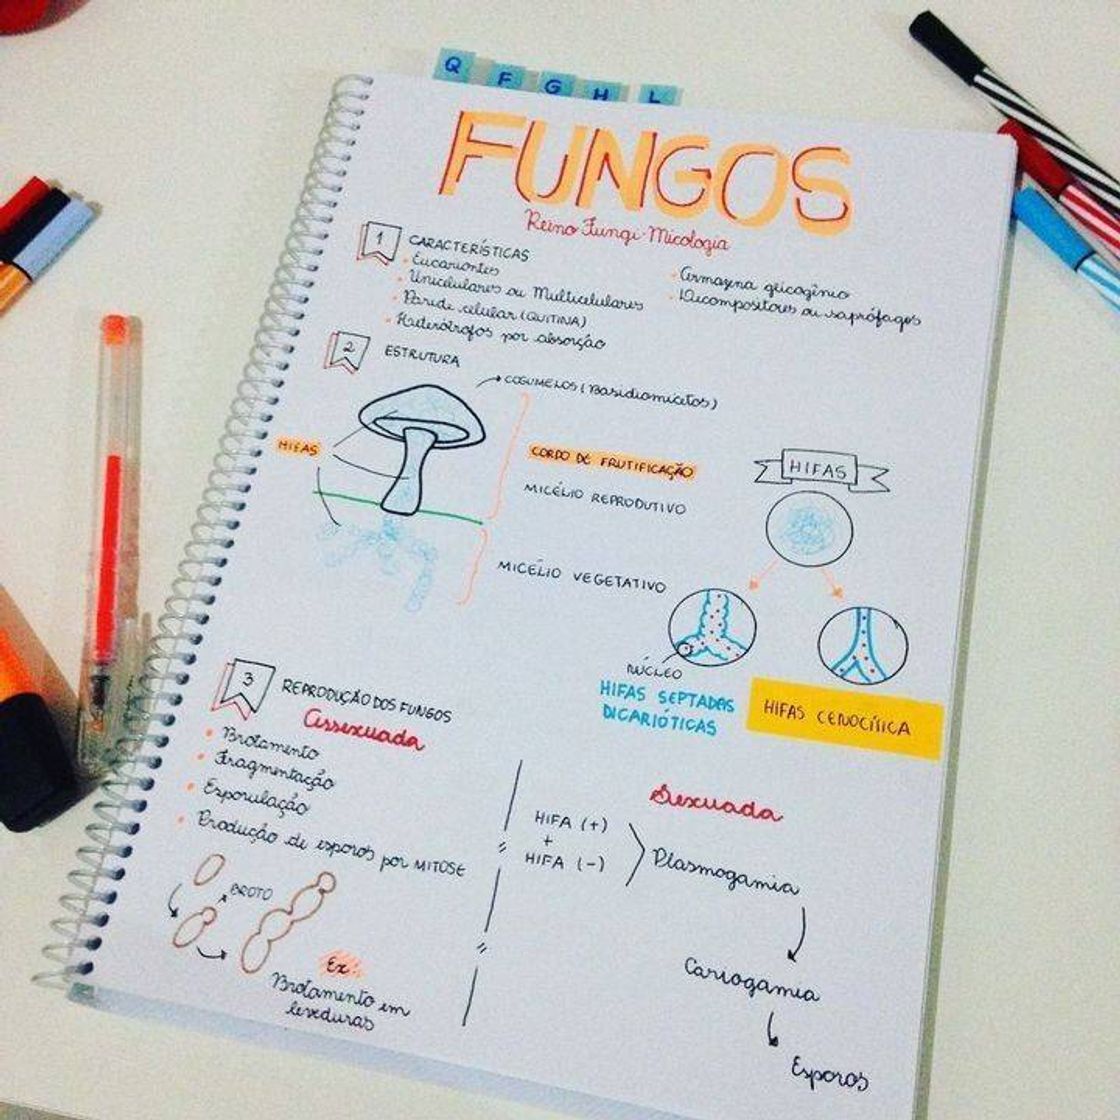 Q F G H L
FUNGOS
Reino Fungi - Micologia
1 CARACTERÍSTICAS
• Eucariontes
• Unicelulares ou Multicelulares
• Parede celular (QUITINA)
• Heterótrofos por absorção
• Armazena glicogênio
• Decompositores ou saprófagos
2 ESTRUTURA
COGUMELOS (Basidiomicetos)
HIFAS
CORPO DE FRUTIFICAÇÃO
MICÉLIO REPRODUTIVO
MICÉLIO VEGETATIVO
HIFAS
NÚCLEO
HIFAS SEPTADAS
DICARIÓTICAS
HIFAS CENOCÍTICA
3 REPRODUÇÃO DOS FUNGOS
Assexuada
• Brotamento
• Fragmentação
• Esporulação
• Produção de esporos por MITOSE
BROTO
Ex:
Brotamento em
leveduras
Sexuada
HIFA (+)
+
HIFA (-)
Plasmogamia
Cariogamia
Esporos